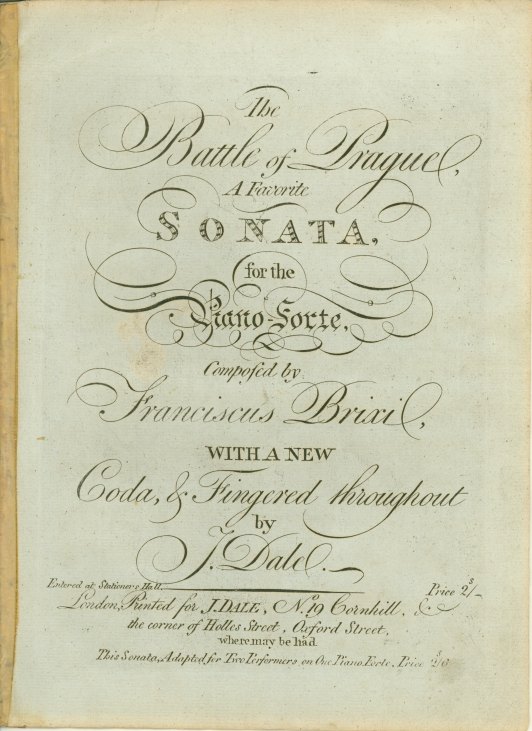 The
Battle of Prague,
A Favorite
SONATA,
for the
Piano-Forte,
Compoſed by
Franciscus Brixi,
WITH A NEW
Coda, & Fingered throughout
by
J. Dale.
Entered at Stationers Hall.
Price 2ˢ/-
London, Printed for J. DALE, Nº 19 Cornhill, &
the corner of Holles Street, Oxford Street,
where may be had.
This Sonata, Adapted for Two Performers on One Piano Forte, Price 2ˢ/6